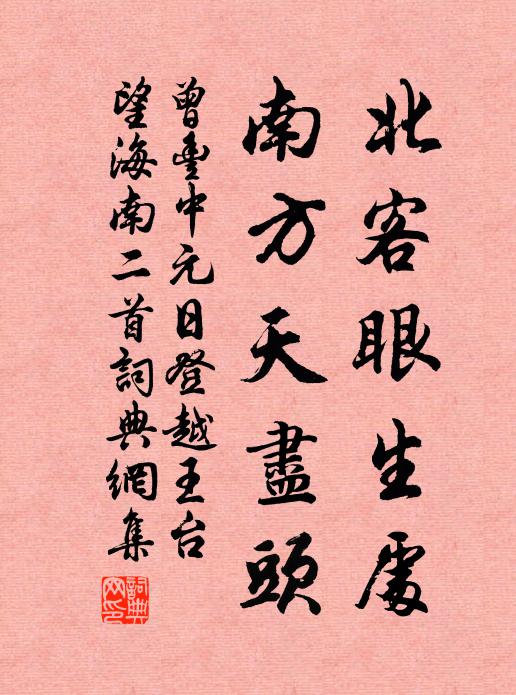 北客眼生處
南方天盡頭
曾豊中元日登越王台
望海南二首詞典網集
詞典網印